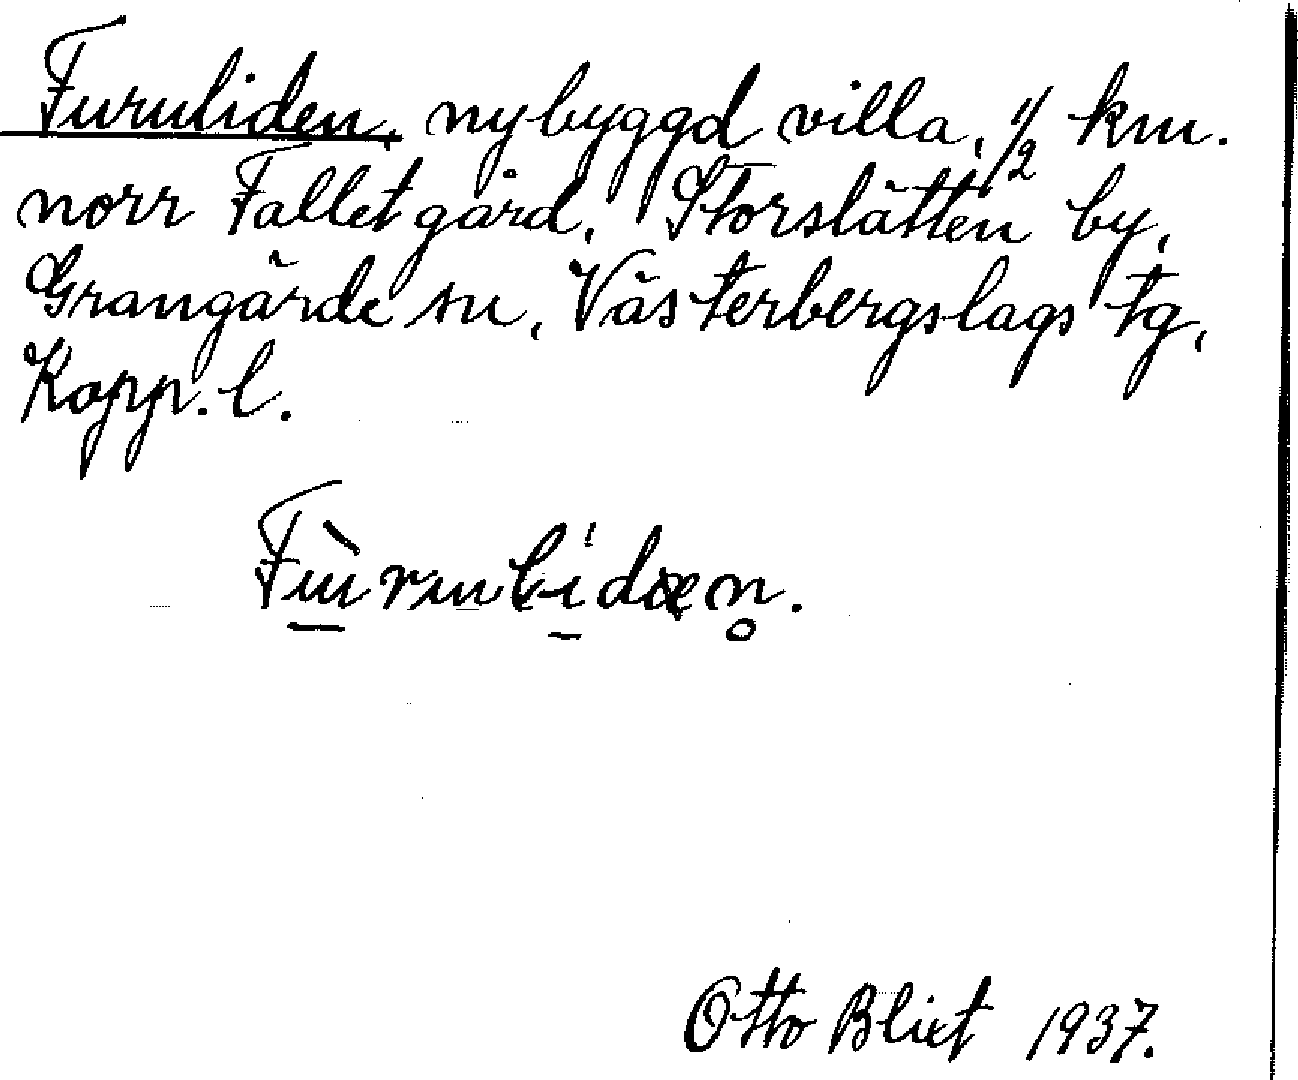 Furuliden, nybyggd villa, 1/2 km.
norr Fallet gård, Storslätten by,
Grangärde sn, Västerbergslags tg,
Kopp. l.
Fùrulidæn̥.
Otto Blixt 1937.